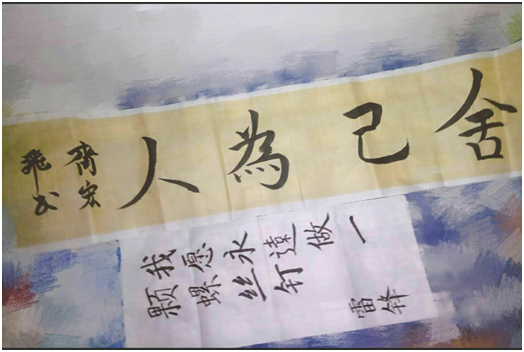 舍己為人
齊宏
飛书
我愿永遠做一
顆螺丝钉
雷锋